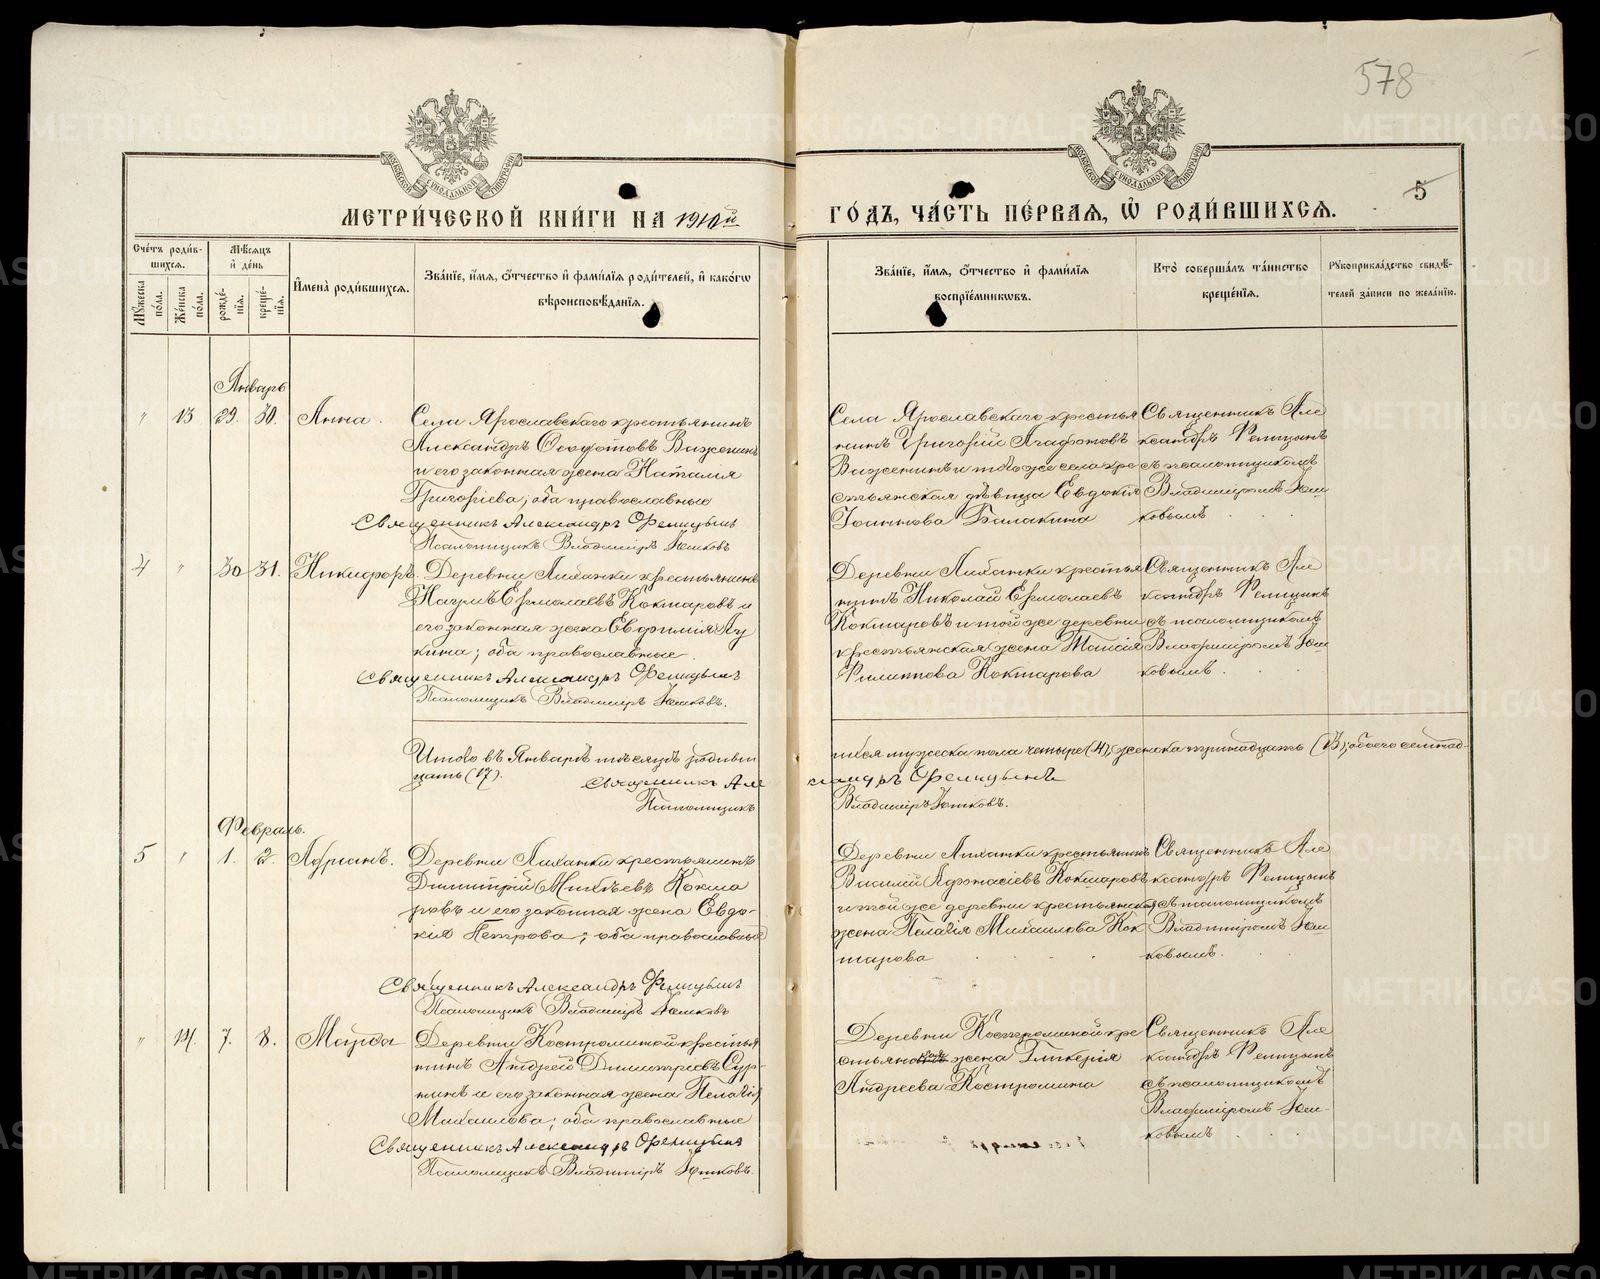 578
МОСКОВСКОЙ СѴНОДАЛЬНОЙ ТИПОГРАФІИ
МОСКОВСКОЙ СѴНОДАЛЬНОЙ ТИПОГРАФІИ
5
МЕТРИ́ЧЕСКОЙ КНИ́ГИ НА 1910й
ГО́ДЪ, ЧА́СТЬ ПЕ́РВАЯ, Ѽ РОДИ́ВШИХСЯ.
Сче́тъ роди́в-
шихся.
Мꙋ́жеска по́ла.
Же́нска по́ла.
Мѣ́сяцъ
и҆ де́нь
рожде́-
нїя.
креще́-
нїя.
И҆мена̀ роди́вшихся.
Зва́нїе, и҆́мя, ѻ҆́тчество и҆ фами́лїя роди́телей, и҆ како́гѡ
вѣроисповѣ́данїя.
Зва́нїе, и҆́мя, ѻ҆́тчество и҆ фами́лїя
воспрїе́мникѡвъ.
Кто̀ соверша́лъ та́инство
креще́нїя.
Рꙋкоприкла́дство свидѣ́-
телей за́писи по жела́нїю.
Январь
" 13 29. 30. Анна.
Села Ярославскаго крестьянинъ
Александръ Ѳеофотовъ Важенинъ
и его законная жена Наталія
Григоріева; оба православные
Священникъ Александръ Ѳелицынъ
Псаломщикъ Владиміръ Юшковъ
Села Ярославскаго крестья
нинъ Григорій Агафоновъ
Важенинъ и того же села кре
стьянская дѣвица Евдокія
Іоаннова Балакина
Священникъ Але
ксандръ Фелицынъ
съ псаломщикомъ
Владиміромъ Юш
ковымъ
4 " 30 31. Никифоръ.
Деревни Лиханки крестьянинъ
Наумъ Ермолаевъ Кокшаровъ и
его законная жена Евфимія Лу
кина; оба православные.
Священникъ Александръ Ѳелицынъ
Псаломщикъ Владиміръ Юшковъ.
Деревни Лиханки крестья
нинъ Николай Ермолаевъ
Кокшаровъ и той же деревни
крестьянская жена Таисія
Филиппова Кокшарова
Священникъ Але
ксандръ Фелицынъ
съ псаломщикомъ
Владиміромъ Юш
ковымъ.
Итого въ Январѣ мѣсяцѣ родивш
шихся мужеска пола четыре (4), женска тринадцать (13); обоего семнад-
цать (17).
Священникъ Але
ксандръ Ѳелицынъ
Псаломщикъ
Владиміръ Юшковъ.
Февраль.
5 " 1. 2. Адріанъ.
Деревни Лиханки крестьянинъ
Димитрій Михѣевъ Кокша
ровъ и его законная жена Евдо-
кия Петрова; оба православные
Священникъ Александръ Ѳелицынъ
Псаломщикъ Владиміръ Юшковъ
Деревни Лиханки крестьянинъ
Василій Афанасіевъ Кокшаровъ
и той же деревни крестьянская
жена Пелагія Михаилова Кок
шарова
Священникъ Але
ксандръ Фелицынъ
съ псаломщикомъ
Владиміромъ Юш
ковымъ.
" 14. 7. 8. Марѳа
Деревни Костроминой крестья
нинъ Андрей Димитріевъ Сур-
нинъ и его законная жена Пелагія
Михаилова; оба православные
Священникъ Александръ Ѳелицынъ
Псаломщикъ Владиміръ Юшковъ.
Деревни Костроминой кре
стьянская жена Гликерія
Андреева Костромина
Священникъ Але
ксандръ Фелицынъ
съ псаломщикомъ
Владиміромъ Юш-
ковымъ
METRIKI.GASO-URAL.RU